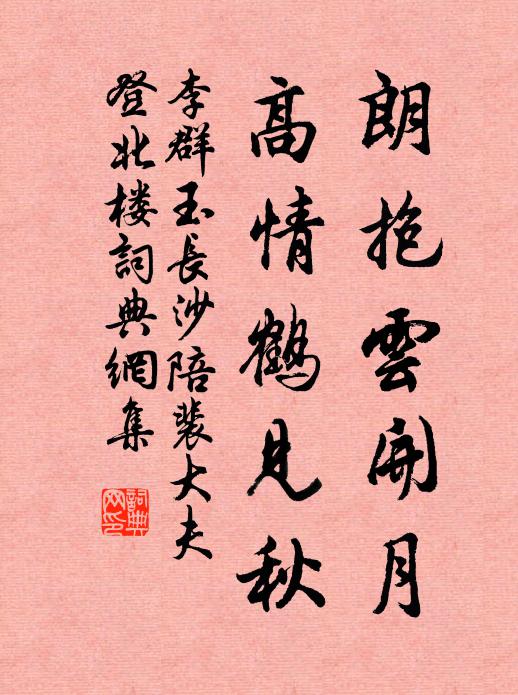 朗抱雲開月
高情鶴見秋
李群玉長沙陪裴大夫
登北楼詞典網集
詞典网印